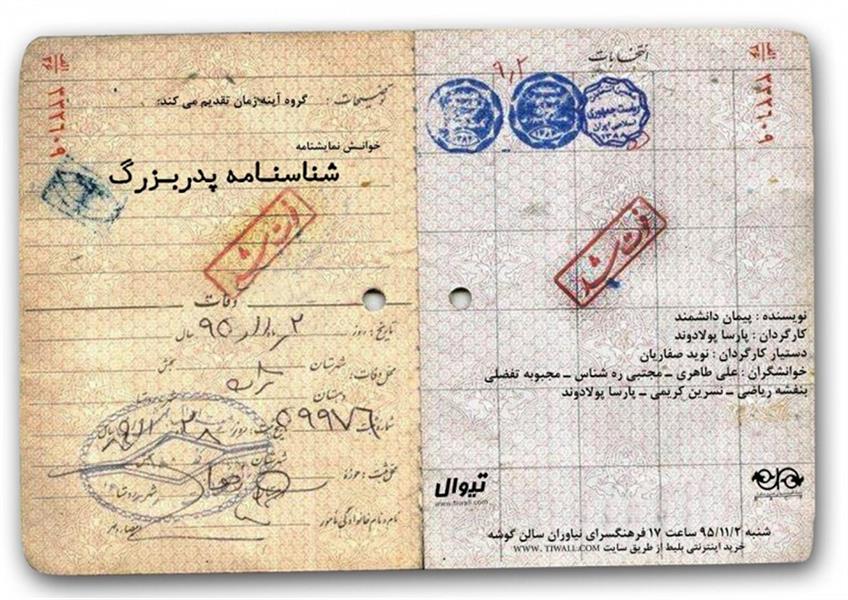 انتخابات
۹٫۲
ریاست جمهوری
اسلامی ایران
۱۳۸۸
فوت شد
نویسنده : پیمان دانشمند
کارگردان : پارسا پولادوند
دستیار کارگردان : نوید صفاریان
خوانشگران : علی طاهری ـ مجتبی ره شناس ـ محبوبه تفضلی
بنفشه ریاضی ـ نسرین کریمی ـ پارسا پولادوند
تیوال
www.tiwall.com
شنبه ۹۵/۱۱/۲ ساعت ۱۷ فرهنگسرای نیاوران سالن گوشه
خرید اینترنتی بلیط از طریق سایت WWW. TIWALL.COM
توضیحات : گروه آینه زمان تقدیم می کند:
خوانـش نمایشنامه
شناسنامه پدربـزرگ
فوت شد
وفات
تاریخ : روز ۲ ۱۱ ۹۵ سال
محل وفات : شهرستان بخش
دهستان
۵۹۹۷۶
محل ثبت : حوزه
نام و نام خانوادگی مامور